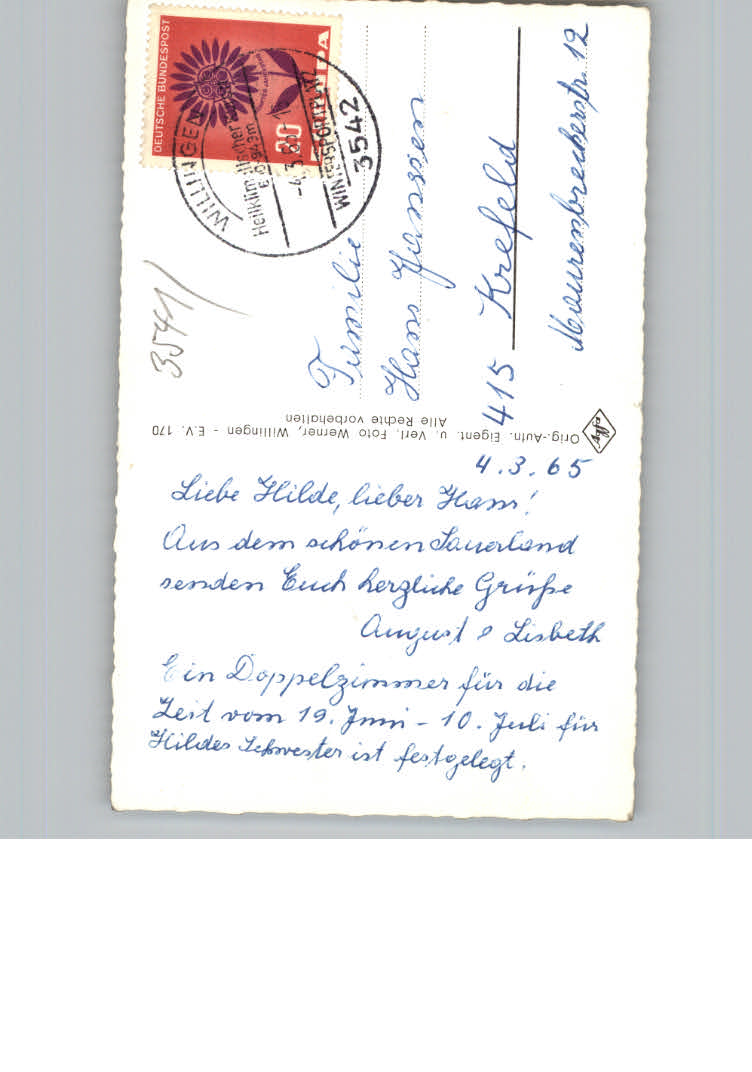 4.3.65
Liebe Hilde, lieber Hans!
Aus dem schönen Sauerland
senden Euch herzliche Grüße
August & Lisbeth
Ein Doppelzimmer für die
Zeit vom 19. Juni - 10. Juli für
Hildes Schwester ist festgelegt.
Orig.-Aufn. Eigent. u. Verl. Foto Werner, Willingen - E.V. 170
Alle Rechte vorbehalten
Familie
Hans Janssen
415 Krefeld
Maurenbrecherstr. 12
3541/
DEUTSCHE BUNDESPOST
20
WILLINGEN
Heilklimatischer
-4.3.65
WINTERSPORTPLATZ
3542